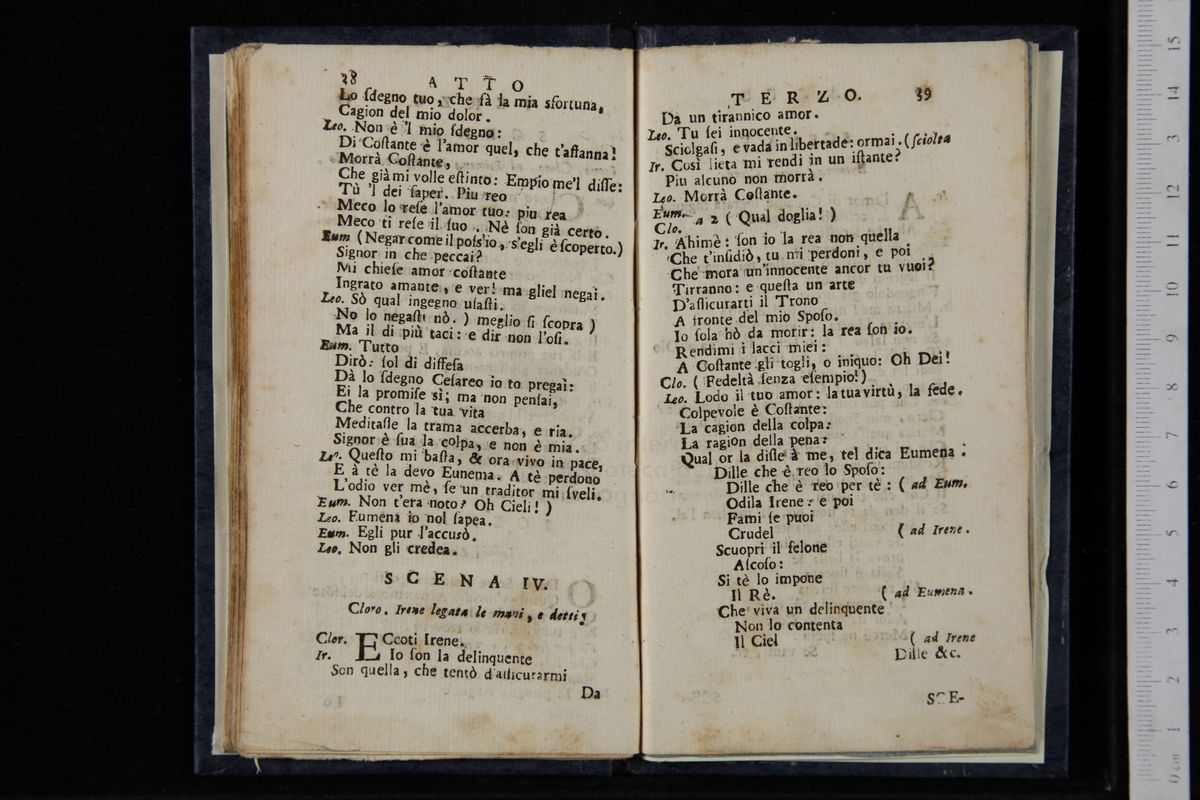 38 ATTO
Lo ſdegno tuo, che fà la mia sfortuna,
Cagion del mio dolor.
Leo. Non è 'l mio ſdegno:
Di Coſtante è l'amor quel, che t'affanna!
Morrà Coſtante,
Che già mi volle eſtinto: Empio me'l diſſe:
Tù 'l dei ſaper. Piu reo
Meco lo reſe l'amor tuo: piu rea
Meco ti reſe il ſuo. Nè ſon già certo.
Eum (Negar come il poſs'io, s'egli è ſcoperto.)
Signor in che peccai?
Mi chieſe amor coſtante
Ingrato amante, e ver! ma gliel negai.
Leo. Sò qual ingegno uſaſti.
No lo negaſti nò. ) meglio ſi ſcopra )
Ma il di più taci: e dir non l'oſi.
Eum. Tutto
Dirò: ſol di diffeſa
Dà lo ſdegno Ceſareo io to pregai:
Ei la promiſe si; ma non penſai,
Che contro la tua vita
Meditaſſe la trama accerba, e ria.
Signor è ſua la colpa, e non è mia.
Leo. Queſto mi baſta, & ora vivo in pace,
E à tè la devo Eunema. A tè perdono
L'odio ver mè, ſe un traditor mi ſveli.
Eum. Non t'era noto? Oh Cieli! )
Leo. Eumena io nol ſapea.
Eum. Egli pur l'accusò.
Leo. Non gli credea.
SCENA IV.
Cloro. Irene legata le mani, e detti;
Clor. ECcoti Irene.
Ir. Io ſon la delinquente
Son quella, che tentò d'aſſicurarmi
Da
TERZO. 39
Da un tirannico amor.
Leo. Tu ſei innocente.
Sciolgaſi, e vada in libertade: ormai. (ſciolta
Ir. Così lieta mi rendi in un iſtante?
Piu alcuno non morrà.
Leo. Morrà Coſtante.
Eum. a 2 ( Qual doglia! )
Clo.
Ir. Ahimè: ſon io la rea non quella
Che t'inſidiò, tu mi perdoni, e poi
Che mora un'innocente ancor tu vuoi?
Tirranno: e queſta un arte
D'aſſicurarti il Trono
A fronte del mio Spoſo.
Io ſola hò da morir: la rea ſon io.
Rendimi i lacci miei:
A Coſtante gli togli, o iniquo: Oh Dei!
Clo. ( Fedeltà ſenza eſempio!)
Leo. Lodo il tuo amor: la tua virtù, la fede.
Colpevole è Coſtante:
La cagion della colpa:
La ragion della pena:
Qual or la diſſe à me, tel dica Eumena.
Dille che è reo lo Spoſo:
Dille che è reo per tè: ( ad Eum.
Odila Irene: e poi
Fami ſe puoi
Crudel ( ad Irene.
Scuopri il felone
Aſcoſo:
Si tè lo impone
Il Rè. ( ad Eumena.
Che viva un delinquente
Non lo contenta
Il Ciel ( ad Irene
Dille &c.
SCE-